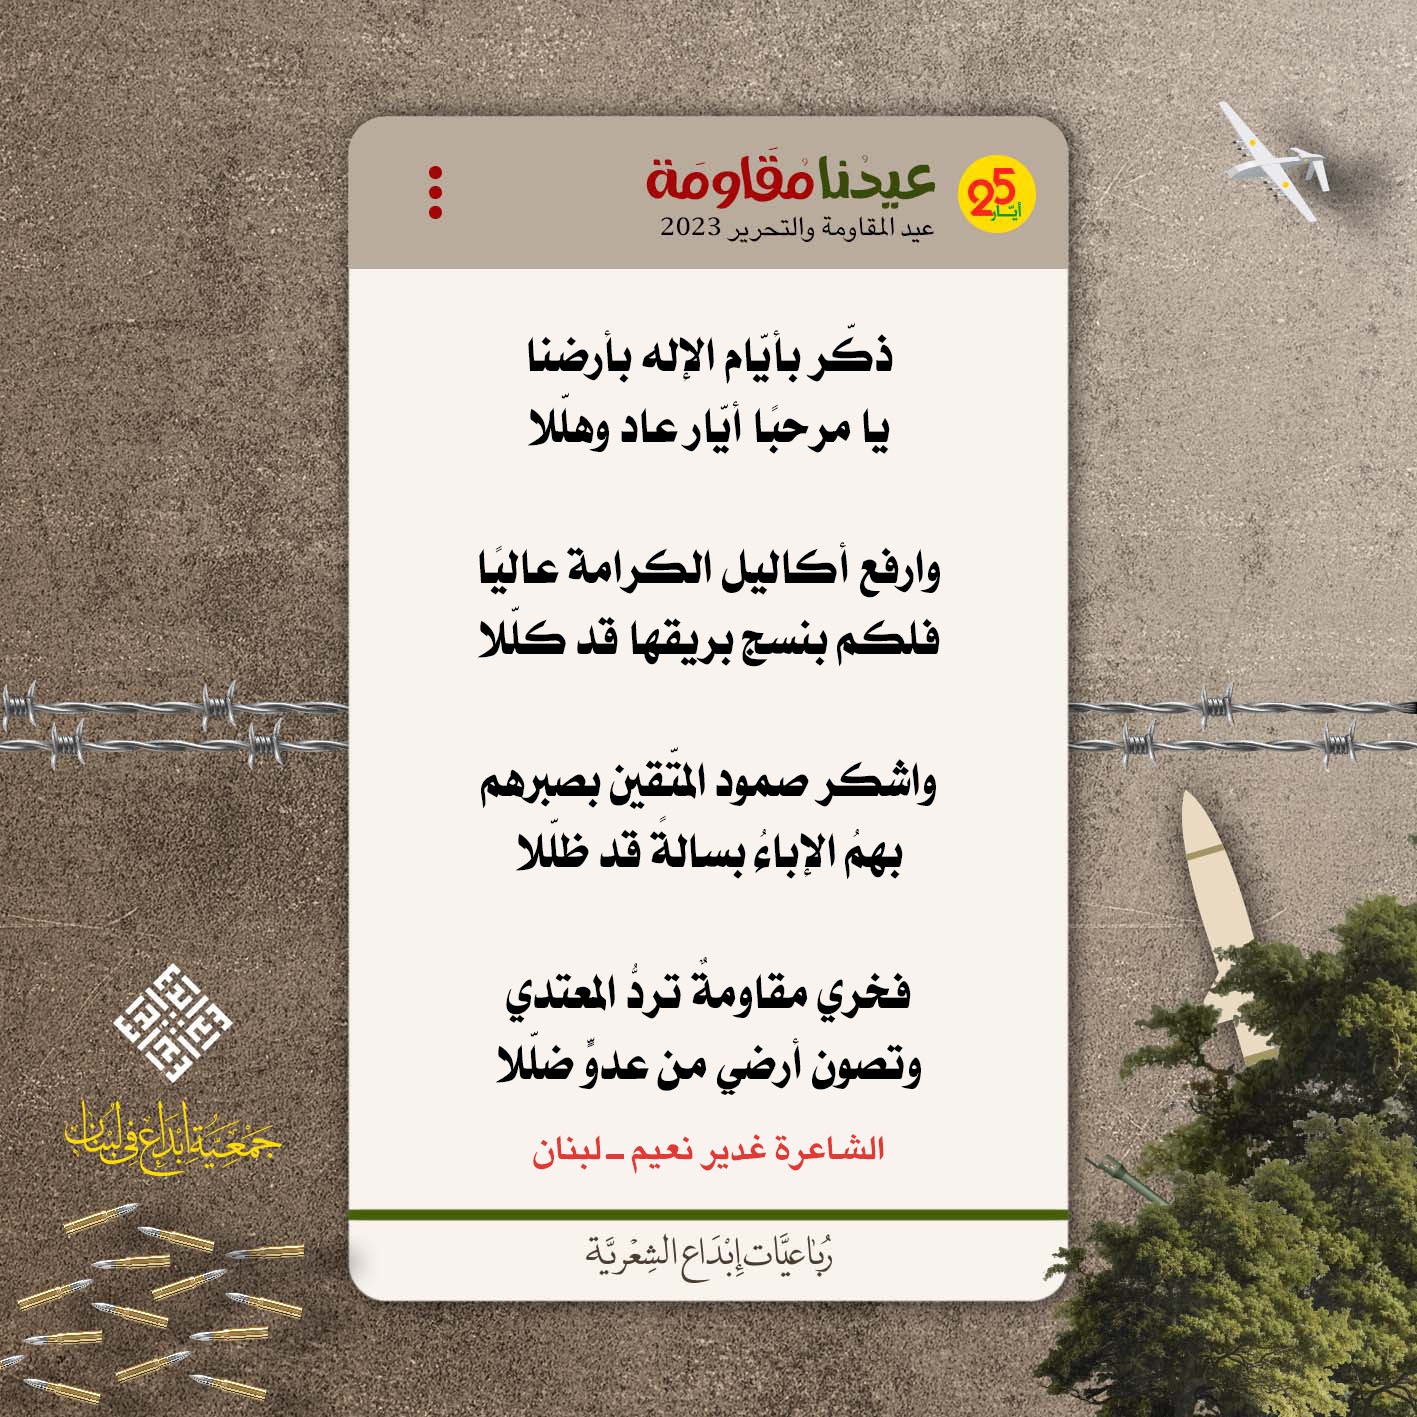 25
أيّار
عيدُنا مُقَاوَمَة
عيد المقاومة والتحرير 2023
ذكّر بأيّام الإله بأرضنا
يا مرحبًا أيّار عاد وهلّلا
وارفع أكاليل الكرامة عاليًا
فلكم بنسج بريقها قد كلّلا
واشكر صمود المتّقين بصبرهم
بهمُ الإباءُ بسالةً قد ظلّلا
فخري مقاومةٌ تردُّ المعتدي
وتصون أرضي من عدوٍّ ضلّلا
الشاعرة غدير نعيم – لبنان
رُبَاعيَّات إِبْدَاع الشِعْريَّة
جَمْعِيَّة إِبْدَاع فِي لُبْنَان